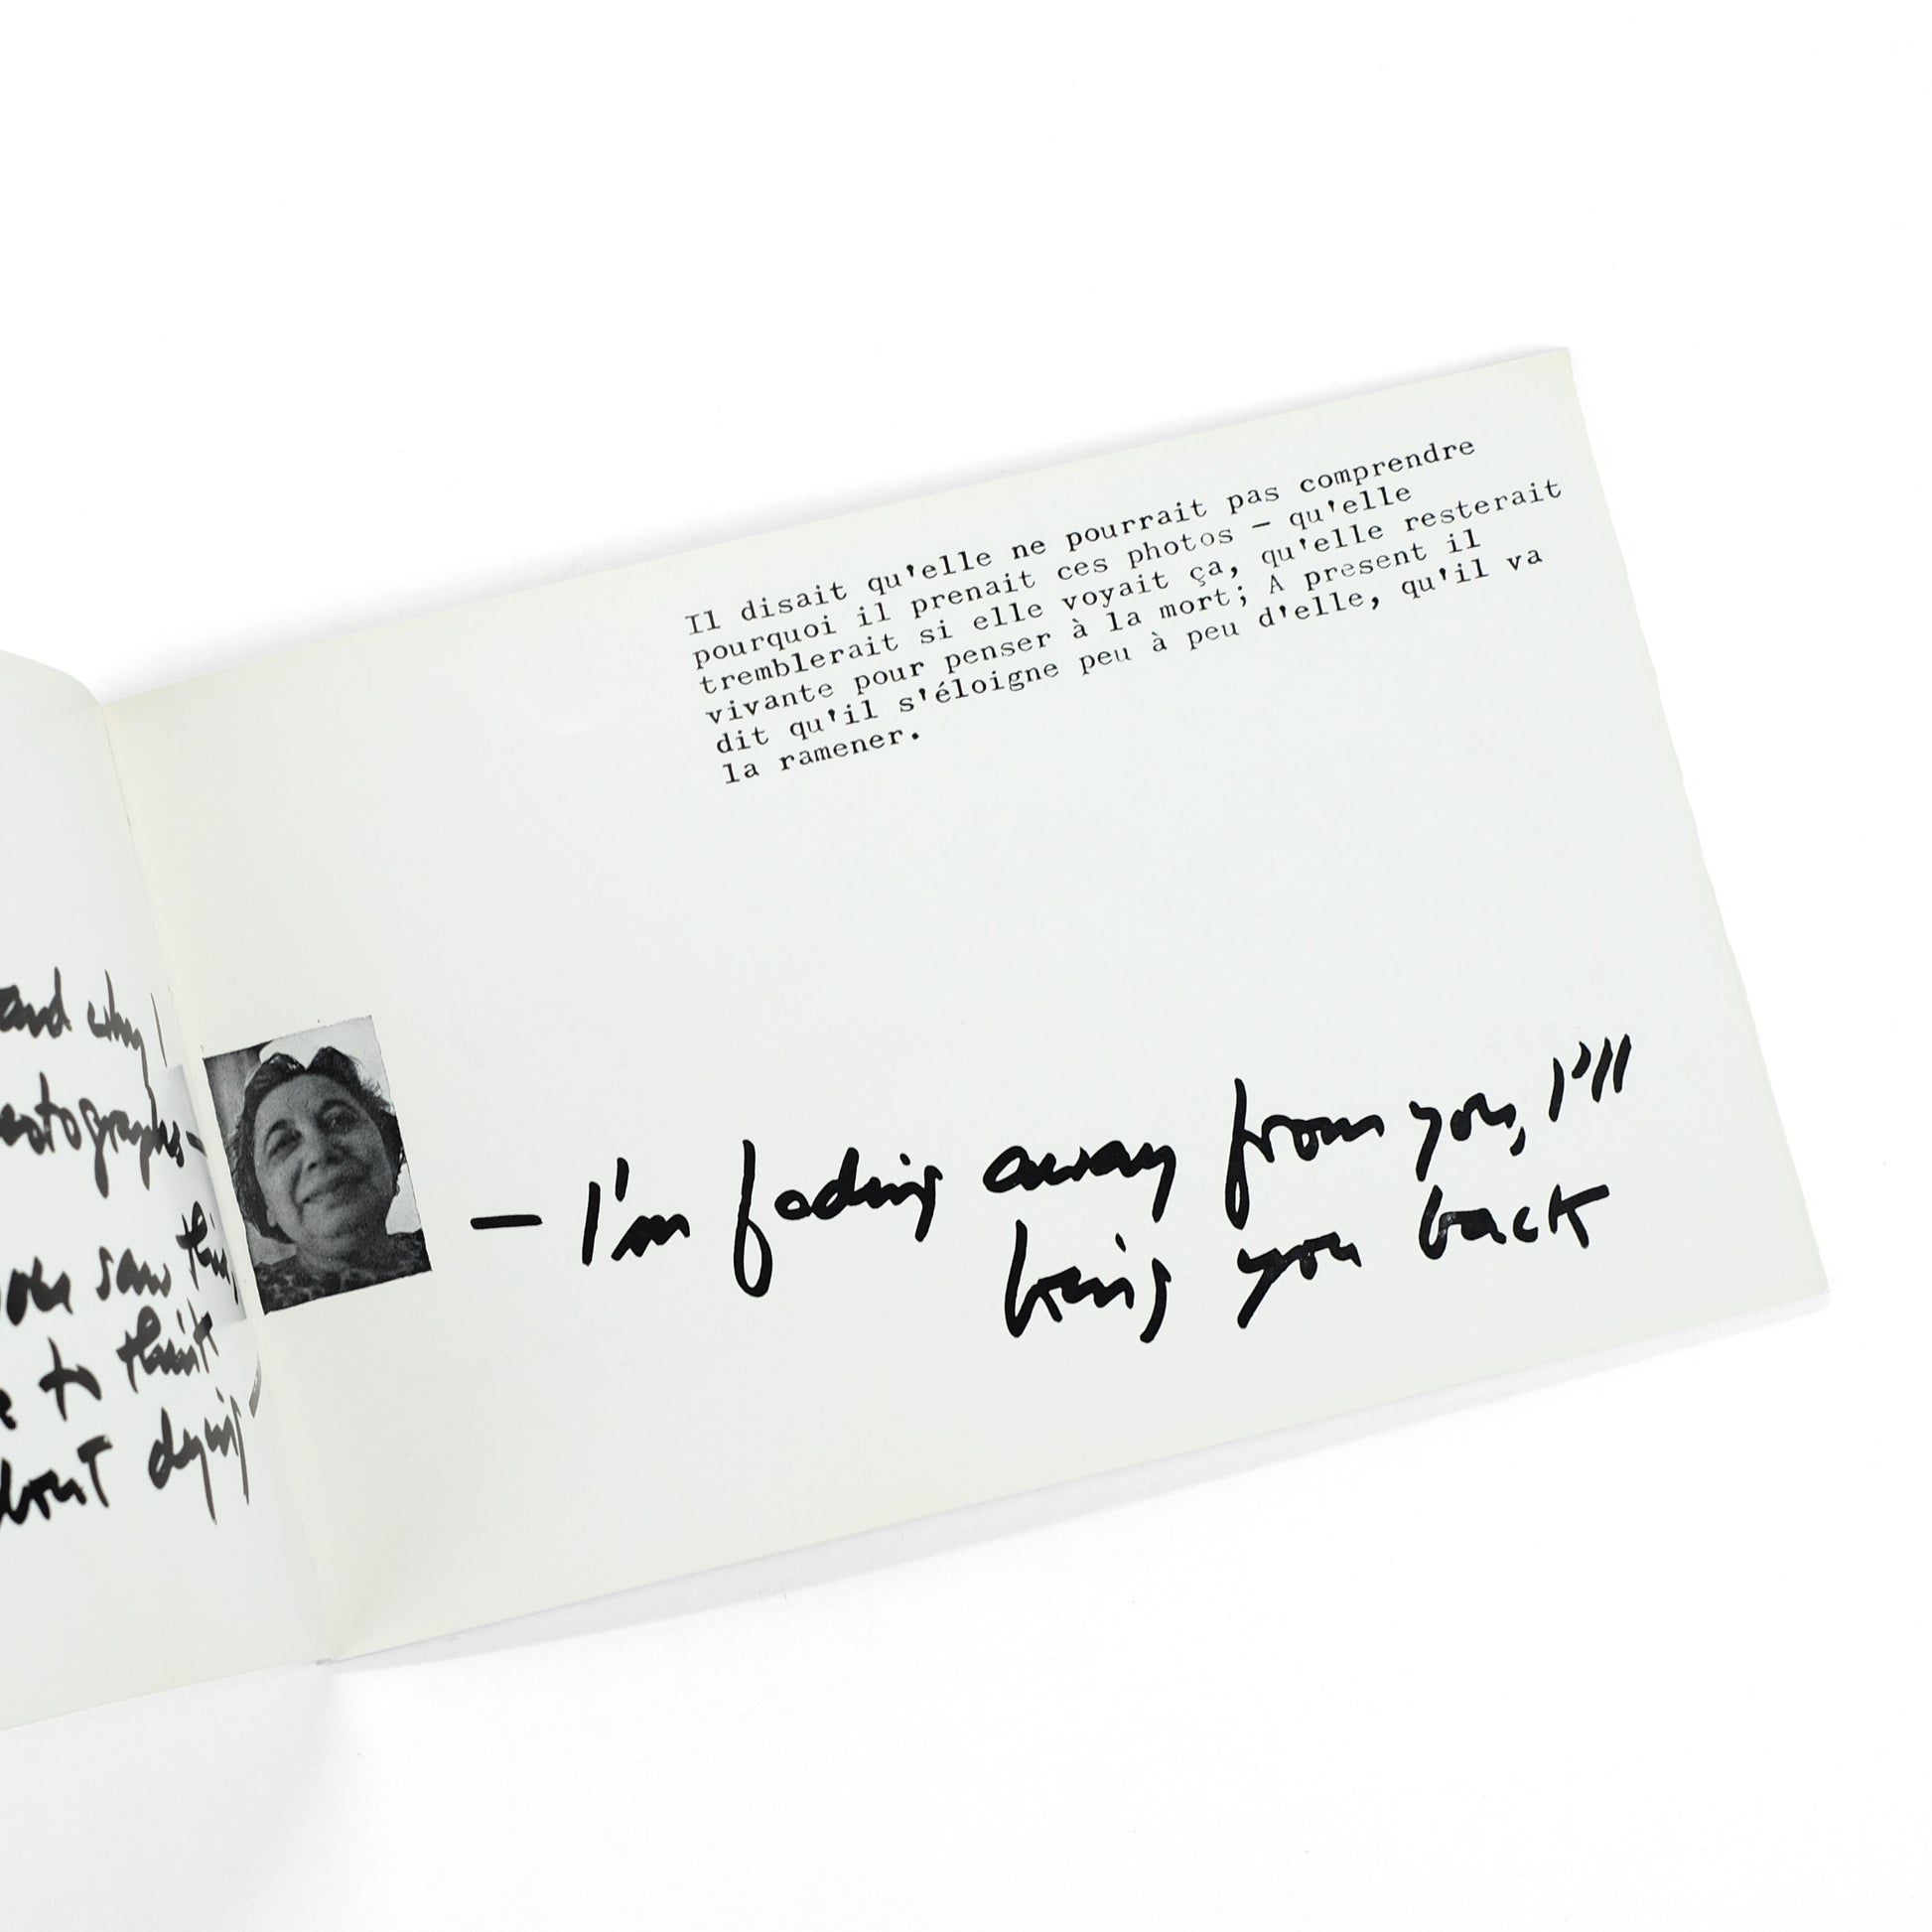 and why I
photographs-
you saw this,
to think
about dying
Il disait qu'elle ne pourrait pas comprendre
pourquoi il prenait ces photos — qu'elle
tremblerait si elle voyait ça, qu'elle resterait
vivante pour penser à la mort; A present il
dit qu'il s'éloigne peu à peu d'elle, qu'il va
la ramener.
— I'm fading away from you, I'll
bring you back